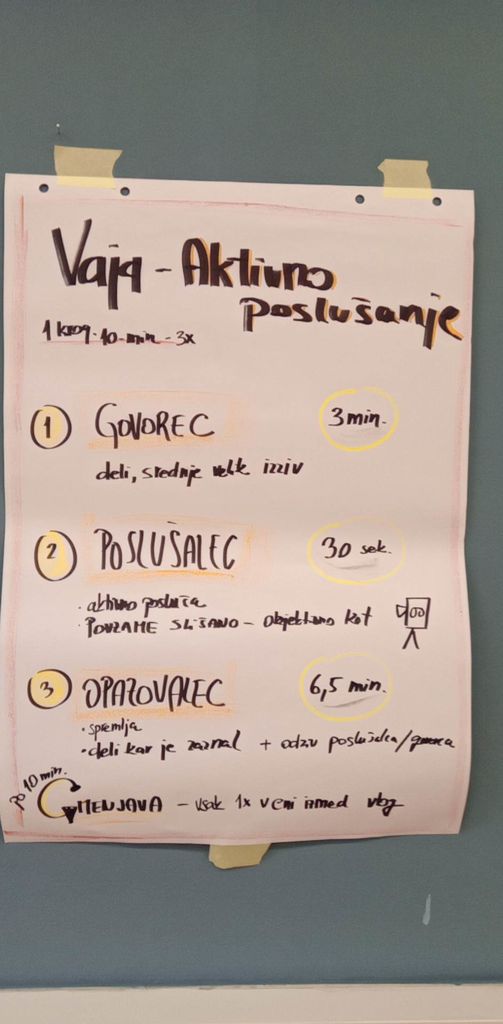 Vaja - Aktivno
poslušanje
1 krog - 10 - min - 3x
1 GOVOREC 3 min.
deli, srednje velik izziv
2 POSLUŠALEC 30 sek.
• aktivno posluša
• POVZAME SLIŠANO - objektivno kot
3 OPAZOVALEC 6,5 min.
• spremlja
• deli kar je zaznal + odziv poslušalca/govorca
po 10 min.
MENJAVA - vsak 1x v eni izmed vlog